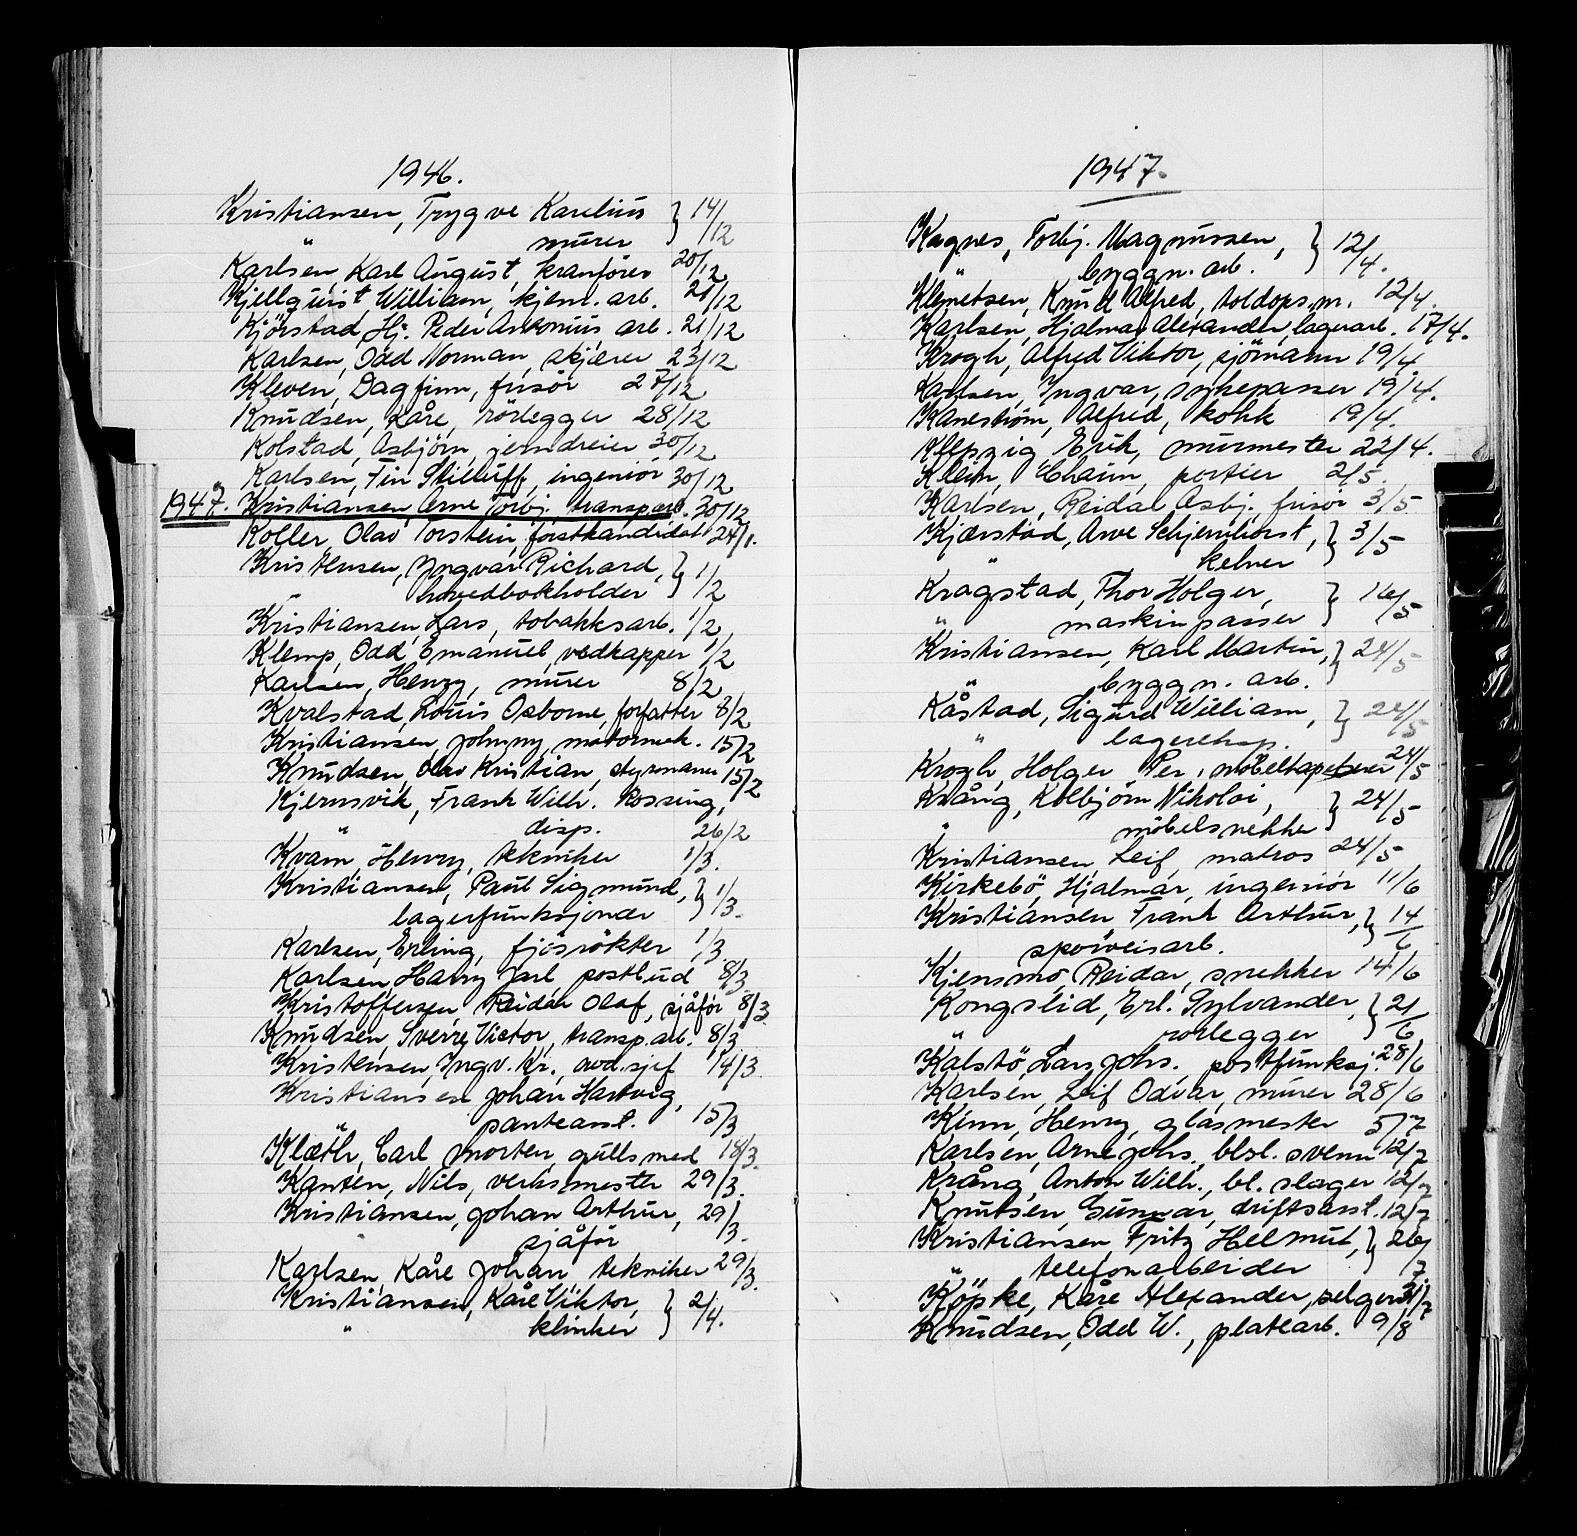 1946.
Kristiansen, Trygve Karelius } 14/12
" murer
Karlsen, Karl August, kranfører 20/12
Kjellquist, William, kjem. arb. 21/12
Kjörstad, Hj. Peder Antonius arb. 21/12
Karlsen, Odd Norman, skjærer 23/12
Kleven, Dagfinn, frisör 27/12
Knudsen, Kåre, rörlegger 28/12
Kolstad, Asbjörn, jerndreier 30/12
Karlsen, Finn ingeniör 30/12
1947. Kristiansen, Arne Torbj. transp.arb. 30/12
Kofler, Olav Torstein, forstkandidat 24/1.
Kristensen, Yngvar Richard, } 1/2
" hovedbokholder
Kristiansen, Lars, tobakksarb. 1/2
Klemp, Odd Emanuel, vedkapper 1/2
Karlsen, Henry, murer 8/2
Kvalstad, Louis Osborne, forfatter 8/2
Kristiansen, Johnny, motormek. 15/2
Knudsen, Olav Kristian, styrmann 15/2
Kjernsvik, Frank Wilh. Rossing,
" disp. 26/2
Kvam, Henry, tekniker 1/3.
Kristiansen, Paul Sigmund, } 1/3.
lagerfunksjonær
Karlsen, Erling, fjösrökter 1/3
Karlsen, Harry Jarl postbud 8/3
Kristoffersen, Reidar Olaf, sjåför 8/3
Knudsen, Sverre Victor, transp.arb. 8/3
Kristensen, Yngv. Kr., avd.sjef 14/3
Kristiansen Johan Hartvig,
" panteass. 15/3
Klæth, Carl Morten, gullsmed 18/3.
Kanten, Nils, verksmester 29/3.
Kristiansen, Johan Arthur, 29/3.
" sjåför
Karlsen, Kåre Johan, tekniker 29/3.
Kristiansen, Kåre Viktor, } 2/4.
" klinker
1947.
Kagnes, Torbj. Magnussen, } 12/4.
" byggn. arb.
Klemetsen, Knud Alfred, toldops.m. 12/4.
Karlsen, Hjalmar Alexander, lagerarb. 17/4.
Krogh, Alfred Viktor, sjömann 19/4.
Karlsen, Yngvar, sykepasser 19/4.
Kaneström, Alfred, kokk 19/4.
Klepzig, Erik, murmester 22/4.
Klein, Chaim, portier 2/5.
Karlsen, Reidal Asbj., frisör 3/5
Kjærstad, Arve Schjernhorst, } 3/5
" kelner
Kragstad, Thor Holger, } 14/5
" maskinpasser
Kristiansen, Karl Martin, } 24/5
" byggn. arb.
Kåstad, Sigurd William, } 24/5
" lagereksp.
Krogh, Holger Per, möbeltapetserer 24/5
Krång, Kolbjörn Nikolai, } 24/5
" möbelsnekker
Kristiansen, Leif, matros 24/5
Kirkebö, Hjalmar, ingeniör 11/6
Kristiansen Frank Arthur, } 14/6
sporveisarb.
Kjensmo, Reidar, snekker 14/6
Kongslid, Erl. Sylvander, } 21/6
" rörlegger
Kalstö, Lars Johs. postfunksj. 28/6
Karlsen, Leif Odvar, murer 28/6
Kinn, Henry, glasmester 5/7
Karlsen, Arne Johs., bl.sl. svenn 12/7
Krång, Anton Wilh., bl. slager 12/7
Knutsen, Gunnar, driftsass. 12/7
Kristiansen, Fritz Helmut, } 26/7
" telefonarbeider
Köpke, Kåre Alexander, selger 31/7
Knudsen, Odd W., platearb. 9/8